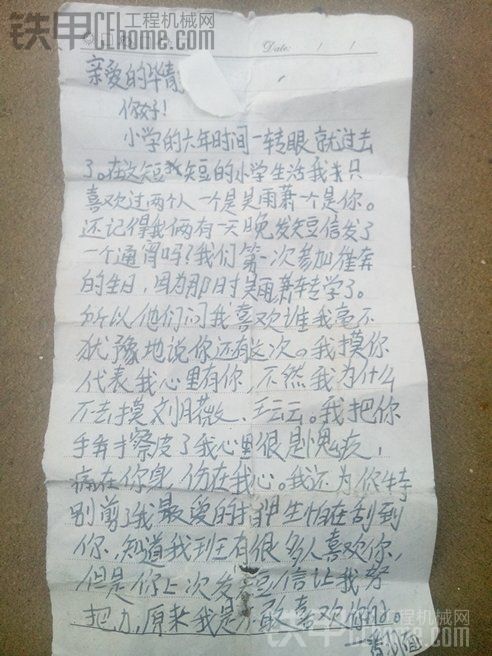 铁甲 工程机械网
cehome.com
Date: / /
亲爱的华静
你好！
小学的六年时间一转眼就过去
了。在这短短的小学生活我只
喜欢过两个人一个是吴雨萧一个是你。
还记得我俩有一天晚发短信发了
一个通宵吗？我们第一次参加崔奔
的生日，因为那时吴雨萧转学了。
所以他们问我喜欢谁我毫不
犹豫地说你还有这次。我摸你
代表我心里有你，不然我为什么
不去摸刘薇、王云云。我把你
手弄擦皮了我心里很是愧疚，
痛在你身，伤在我心。我还为你特
别剪了我最爱的指甲生怕在刮到
你，知道我班有很多人喜欢你，
但是你上次发短信让我努
把力，原来我是敢喜欢你的。
铁甲 工程机械网
cehome.com